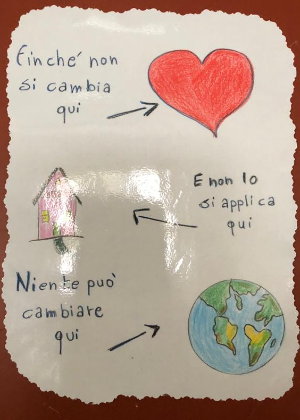 Finché non
si cambia
qui
E non lo
si applica
qui
Niente può
cambiare
qui